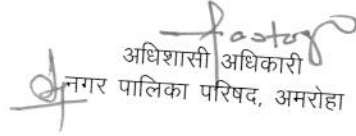 अधिशासी अधिकारी
नगर पालिका परिषद, अमरोहा